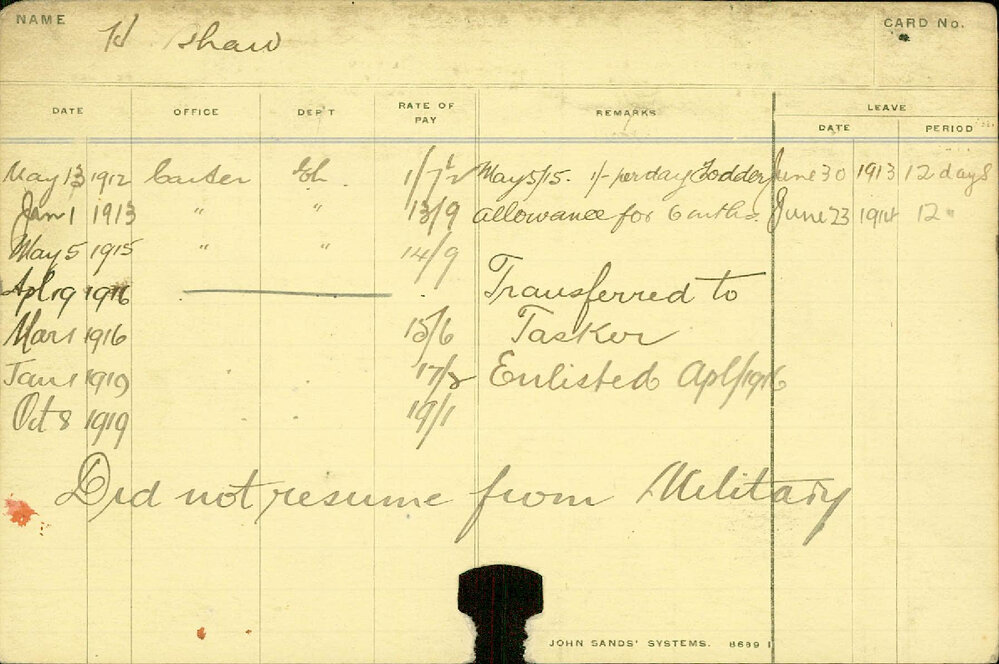 NAME H Shaw CARD No.
DATE OFFICE DEPT RATE OF PAY REMARKS LEAVE
DATE PERIOD
May 13 1912 Carter Eh 1/7½ May 5/15. 1/- per day Fodder June 30 1913 12 days
Jan 1 1913 " " 13/9 allowance for 6 mths. June 23 1914 12 "
May 5 1915 " " 14/9
Apl 19 1916 Transferred to
Mar 1 1916 15/6 Tasker
Jan 1 1919 17/2 Enlisted Apl/1916
Oct 8 1919 19/1
Did not resume from Military
JOHN SANDS' SYSTEMS. 8689